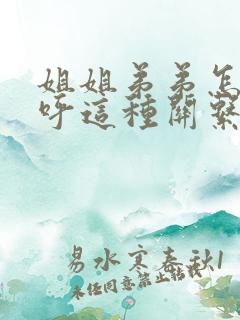 姐姐弟弟怎
呼這種關繫
易水寒春秋1
未经同意禁止转载